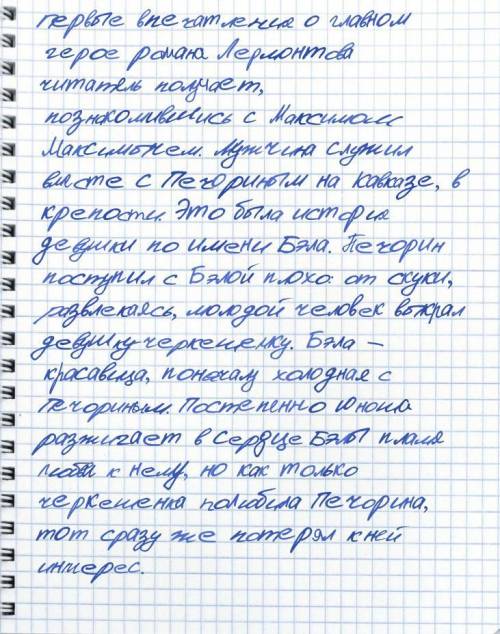 первые впечатления о главном
герое романа Лермонтова
читатель получает,
познакомившись с Максимом
Максимычем. Мужчина служил
вместе с Печориным на Кавказе, в
крепости. Это была история
девушки по имени Бэла. Печорин
поступил с Бэлой плохо: от скуки,
развлекаясь, молодой человек выкрал
девушку-черкешенку. Бэла –
красавица, поначалу холодная с
Печориным. Постепенно юноша
разжигает в сердце Бэлы пламя
любви к нему, но как только
черкешенка полюбила Печорина,
тот сразу же потерял к ней
интерес.